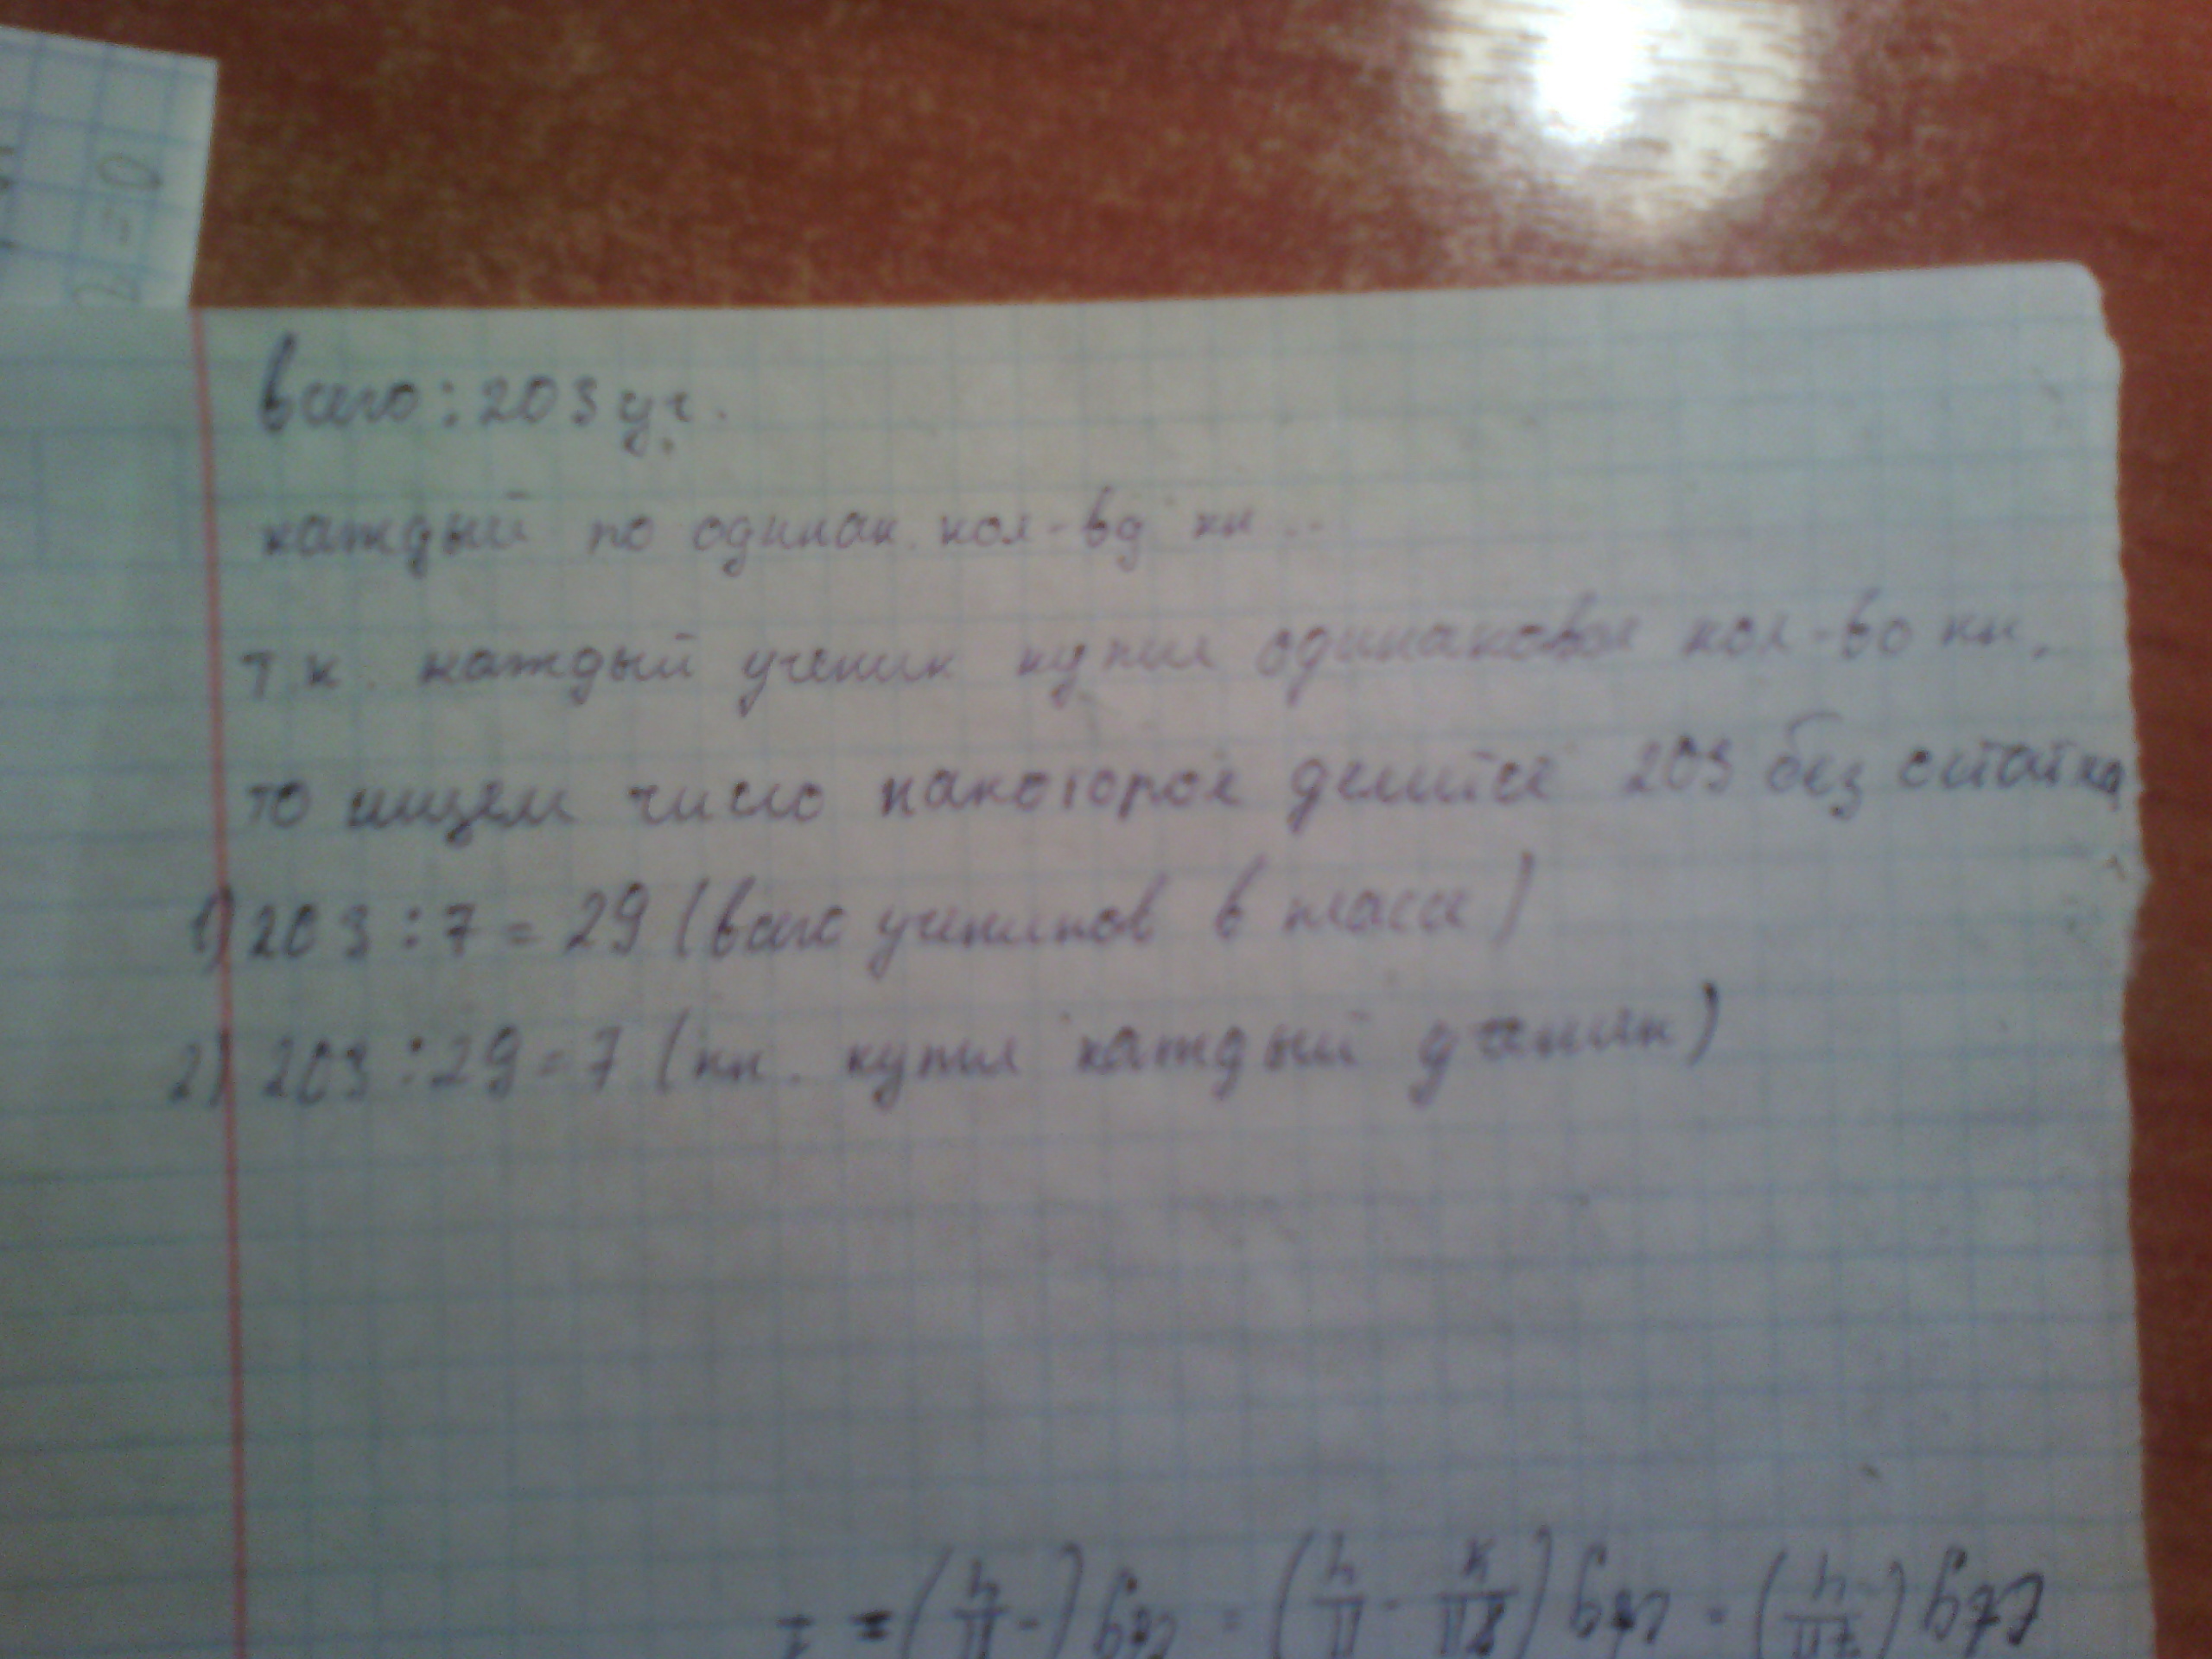 Всего : 203 уч.
каждый по одинак. кол-во кн..
т.к. каждый ученик купил одинаковое кол-во кн,
то ищем число накоторое делится 203 без остатка
1) 203 : 7 = 29 (всего учеников в классе)
2) 203 : 29 = 7 (кн. купил каждый ученик)
2 = 0